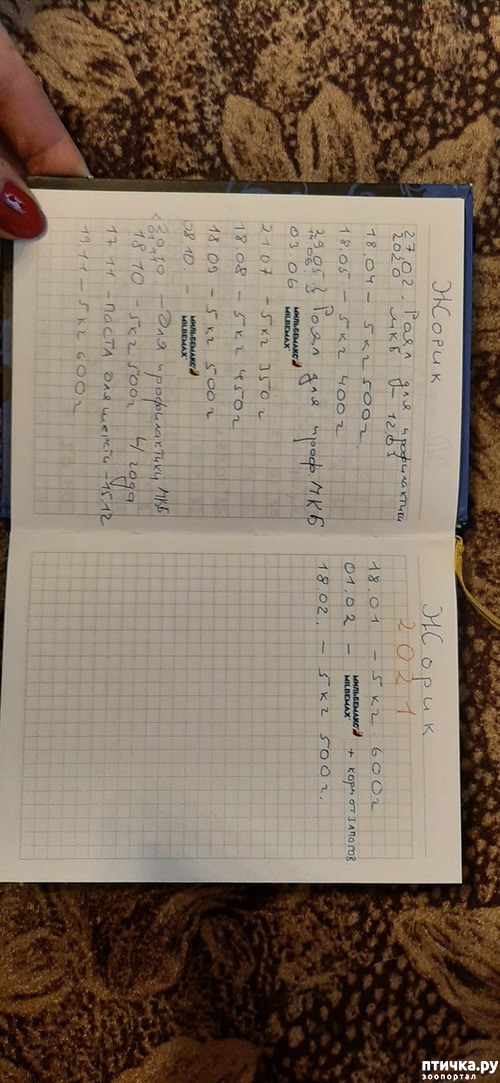 Жорик
27.02. Роял для профилактики
2020 МКБ
18.04 - 5 кг 500г.
18.05 - 5 кг 400г
29.05 } Роял для проф МКБ
03.06 МИЛЬБЕМАКС MILBEMAX
21.07 - 5 кг 350г
18.08 - 5 кг 450г
18.09 - 5 кг 500г
08.10 - МИЛЬБЕМАКС MILBEMAX
20.10. - Для профилактики МКБ
18.10 - 5 кг 500г 4 года
17.11 - Паста для шерсти - 15.12
19.11 - 5 кг 600г
Жорик
2021
18.01. - 5 кг 600г
01.02 - МИЛЬБЕМАКС MILBEMAX + корм от запоров
18.02. - 5 кг 500г.
птичка.ру
зоопортал